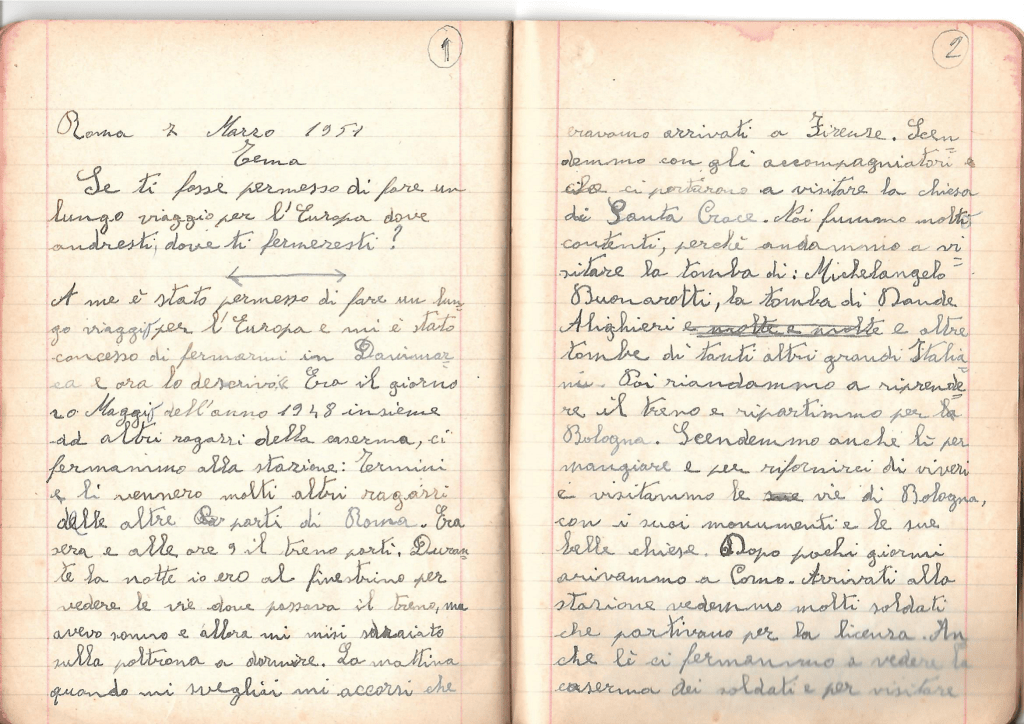 1
Roma 7 Marzo 1951
Tema
Se ti fosse permesso di fare un
lungo viaggio per l'Europa dove
andresti, dove ti fermeresti?
A me è stato permesso di fare un lun=
go viaggio per l'Europa e mi è stato
concesso di fermarmi in Danimar=
ca e ora lo descrivo. Era il giorno
20 Maggio dell'anno 1948 insieme
ad altri ragazzi della caserma, ci
fermammo alla stazione: Termini
e li vennero molti altri ragazzi
delle altre parti di Roma. Era
sera e alle ore 9 il treno partì. Duran=
te la notte io ero al finestrino per
vedere le vie dove passava il treno, ma
avevo sonno e allora mi misi sdraiato
sulla poltrona a dormire. La mattina
quando mi svegliai mi accorsi che
2
eravamo arrivati a Firenze. Scen=
demmo con gli accompagniatori e
ci portarono a visitare la chiesa
di Santa Croce. Noi fummo molti
contenti, perchè andammo a vi=
sitare la tomba di: Michelangelo
Buonarotti, la tomba di Dande
Alighieri e molte e molte e altre
tombe di tanti altri grandi Italia
ni. Poi riandammo a riprende=
re il treno e ripartimmo per
Bologna. Scendemmo anche lì per
mangiare e per rifornirci di viveri
e visitammo le vie di Bologna,
con i suoi monumenti e le sue
belle chiese. Dopo pochi giorni
arivammo a Como. Arrivati alla
stazione vedemmo molti soldati
che partivano per la licenza. An
che lì ci fermammo a vedere la
caserma dei soldati e per visitare